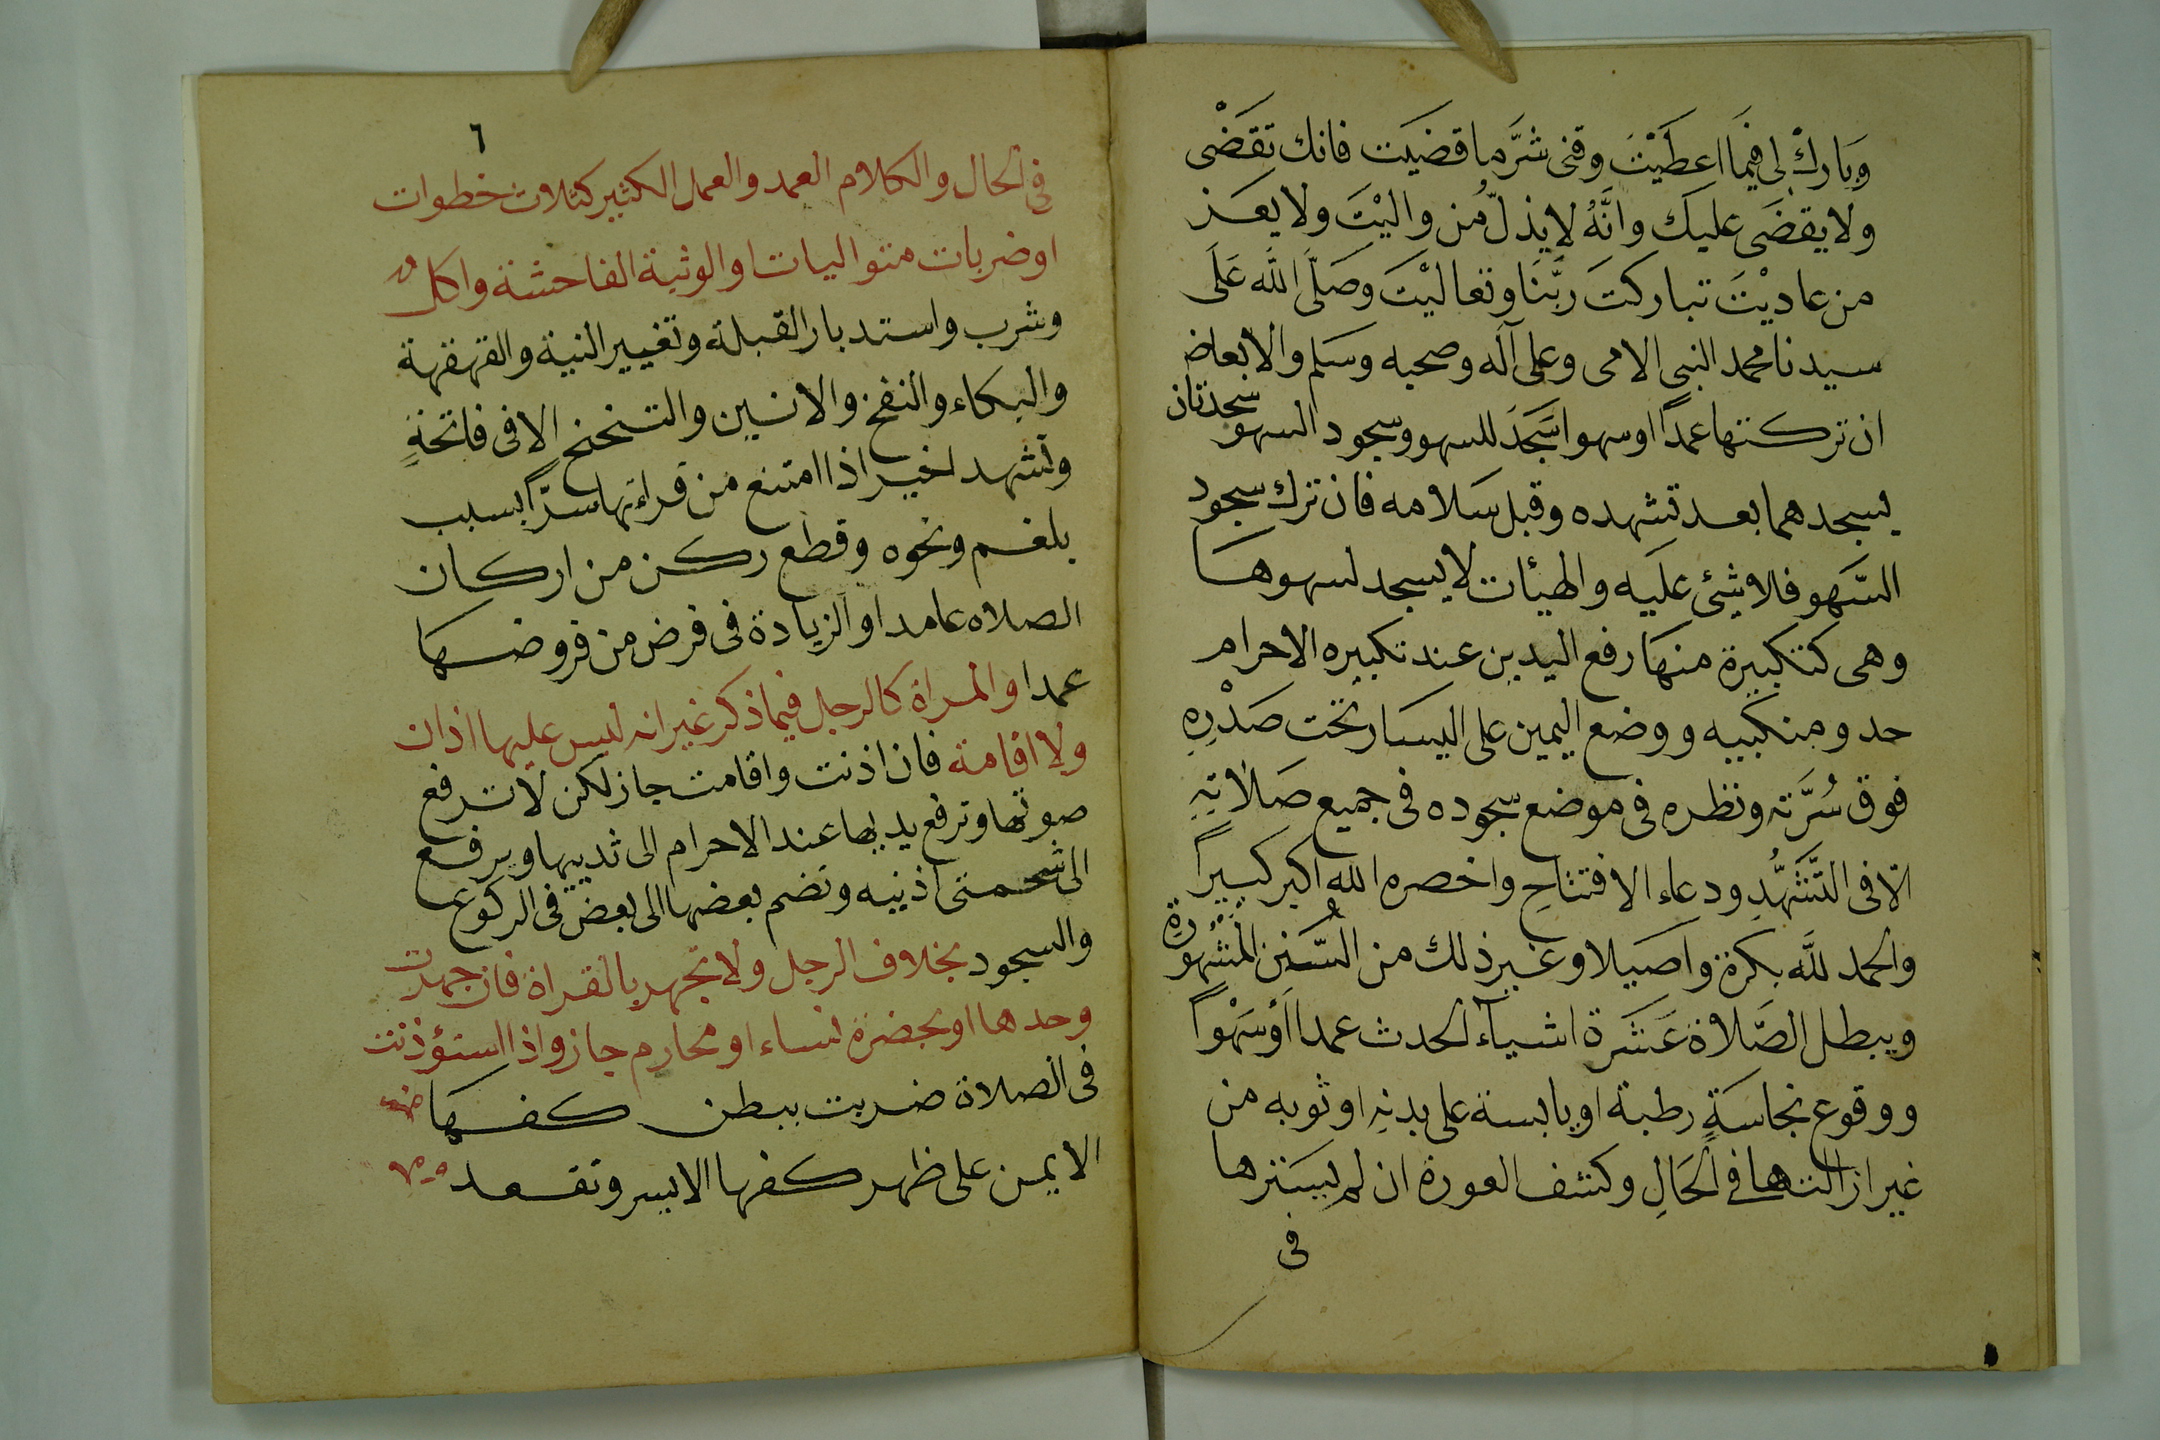 وَبَارِكْ لى فِيمَا اعطَيْتَ وقنى شرَّ ما قضيت فانك تقضْى
ولا يقضَى عليك وانَّهُ لا يذلُّ من واليْتَ ولا يعـز
من عاديْتَ تباركتَ ربَّنَا وتعاليْتَ وصَلَّى الله عَلَى
سيدنا محمد النبى الامى وعلى آله وصحبه وسلم والابعاض
ان تركتها عمداً او سهوا سَجَدَ للسهو وسجود السهو سجدتان
يسجدهما بعد تشهده وقبل سَلامه فان ترك سجود
السَّهو فلا شئ عليه والهيئات لا يسجد لسهوها
وهى كتكبيرة منها رفع اليدين عند تكبيره الاحرام
حدو منكبيه ووضع اليمين على اليسار تحت صَدْرِهِ
فوق سُرَّته ونظره فى موضع سجوده فى جميع صَلاتِهِ
الّا فى التَّشَهُّدِ ودعاء الافتتاحِ واخصره الله اكبر كبيراً
والحمد لله بكرة واصيلا وغير ذلك من السُّنَنِ المَشْهُورَةِ
ويبطل الصَّلاة عَشَرة اشيآء الحدث عمدا اَوْسَهْواً
ووقوع نجاسَةٍ رطبة او يابسة على بدنِهِ او ثوبه من
غير ازالتها فى الحَالِ وكشف العورة ان لم يَسْتَترها
فى
٦
فى الحال والكلام العمد والعمل الكثير كثلاث خطوات
او ضربات متواليات والوثبة الفاحشة واكل
وشرب واستدبار القبلة وتغيير النية والقهقهة
والبكاء والنفخ والانين والتنحنح الا فى فاتحةٍ
وتشهد اخير اذا امتنع من قراءتها سرّاً بسبب
بلغم ونحوه وقطع ركن من اركان
الصلاه عامدا او الزيادة فى فرض من فروضها
عمدا والمراة كالرجل فيما ذكر غير انه ليس عليها اذان
ولا اقامة فان اذنت واقامت جاز لكن لا ترفع
صوتها وترفع يديها عند الاحرام الى ثدييها ويرفع
الى شحمتى اذنيه وتضم بعضها الى بعض فى الركوع
والسجود بخلاف الرجل ولا تجهر بالقراة فان جهرت
وحدها او بحضرة نساء او محارم جاز واذا استؤذنت
فى الصلاة ضربت ببطن كفها
الايمن على ظهر كفها الايسر وتقعد